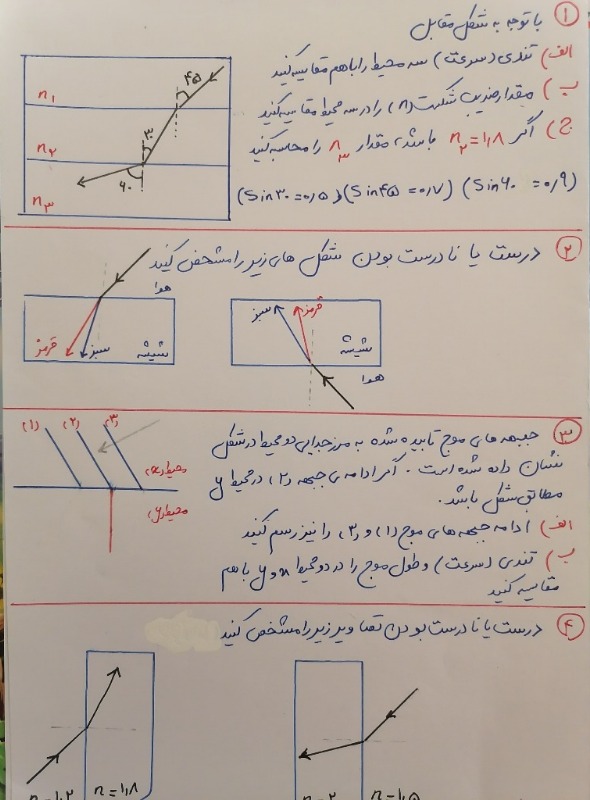 ① با توجه به شکل مقابل
الف) تندی (سرعت) سه محیط را باهم مقایسه کنید
ب) مقدار ضریب شکست (n) را در سه محیط مقایسه کنید
ج) اگر n۲=۱٫۸ باشد، مقدار n۳ را محاسبه کنید
(Sin۳۰=۰٫۵) (Sin۴۵=۰٫۷) (Sin۶۰=۰٫۹)
n۱
۴۵
n۲
۳۰
n۳
۶۰
② درست یا نادرست بودن شکل های زیر را مشخص کنید
سبز
قرمز
شیشه
هوا
هوا
قرمز
سبز
شیشه
③ جبهه های موج تابیده شده به مرز جدایی دو محیط در شکل
نشان داده شده است. اگر ادامه ی جبهه (۲) در محیط y
مطابق شکل باشد.
الف) ادامه جبهه های موج (۱) و (۳) را نیز رسم کنید
ب) تندی (سرعت) و طول موج را در دو محیط x و y باهم
مقایسه کنید
(۱) (۲) (۳)
محیط(x)
محیط(y)
④ درست یا نادرست بودن تصاویر زیر را مشخص کنید
n=۲ n=۱٫۵
n=۱٫۲ n=۱٫۸